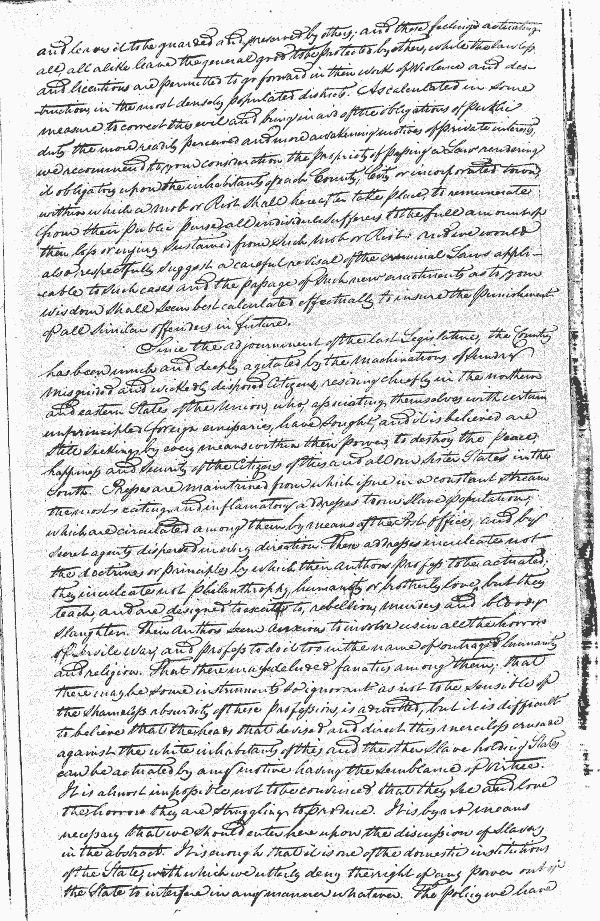 and leave it to be guarded and preserved by others, and these feelings actuating
all, all alike leave the general good to be protected by others, while the lawless
and licentious are permitted to go forward in their work of violence and des-
truction, in the most densely populated districts. As calculated in some
measure to correct this evil and bring in aid of the obligations of public
duty the more readily perceived and more awakening motives of private interest,
we recommend to your consideration the propriety of passing a Law rendering
it obligatory upon the inhabitants of each County, City or incorporated town,
within which a mob or Riot shall hereafter take place, to remunerate
from their public purse, all individual sufferers to the full amount of
their loss or injury sustained from such mob or Riot. And we would
also respectfully suggest a careful revisal of the criminal Laws appli-
cable to such cases and the passage of such new enactments as to your
wisdom shall seem best calculated effectually to insure the punishment
of all similar offenders in future.
Since the adjournment of the last Legislature, the Country
has been much and deeply agitated by the machinations of sundry
misguided and wickedly disposed Citizens, residing chiefly in the northern
and eastern States of the Union, who, associating themselves with certain
unprincipled foreign emissaries, have sought, and it is believed are
still seeking by every means within their power, to destroy the peace,
happiness and security of the Citizens of this and all our sister States in the
South. Presses are maintained from which issue in a constant stream
the most exciting and inflamatory addresses to our slave population,
which are circulated among them by means of the Post offices, and by
secret agents dispersed in every direction. These addresses inculcate not
the doctrines or principles by which their authors profess to be actuated,
they inculcate not philanthropy, humanity or brotherly love, but they
teach, and are designed to excite to, rebellion, murders and bloody
slaughter. Their Authors seem anxious to involve us in all the horrors
of servile war, and profess to do it too in the name of outraged humanity
and religion. That there may be deluded fanatics among them; that
there may be some instruments so ignorant as not to be sensible of
the shameless absurdity of these professions, is admitted, but it is difficult
to believe that the heads that devised and direct this merciless crusade
against the white inhabitants of this and the other Slave holding States
can be actuated by any motive having the semblance of virtue.
It is almost impossible not to be convinced that they see and love
the horrors they are struggling to produce. It is by no means
necessary that we should enter here upon the discussion of slavery
in the abstract. It is enough that it is one of the domestic institutions
of the State, with which we utterly deny the right of any power out of
the State to interfere in any manner whatever. The policy we have